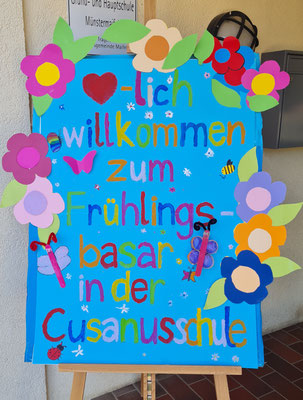 Grund- und Hauptschule
Münstermaifeld
❤-lich
willkommen
zum
Frühlings-
basar
in der
Cusanusschule